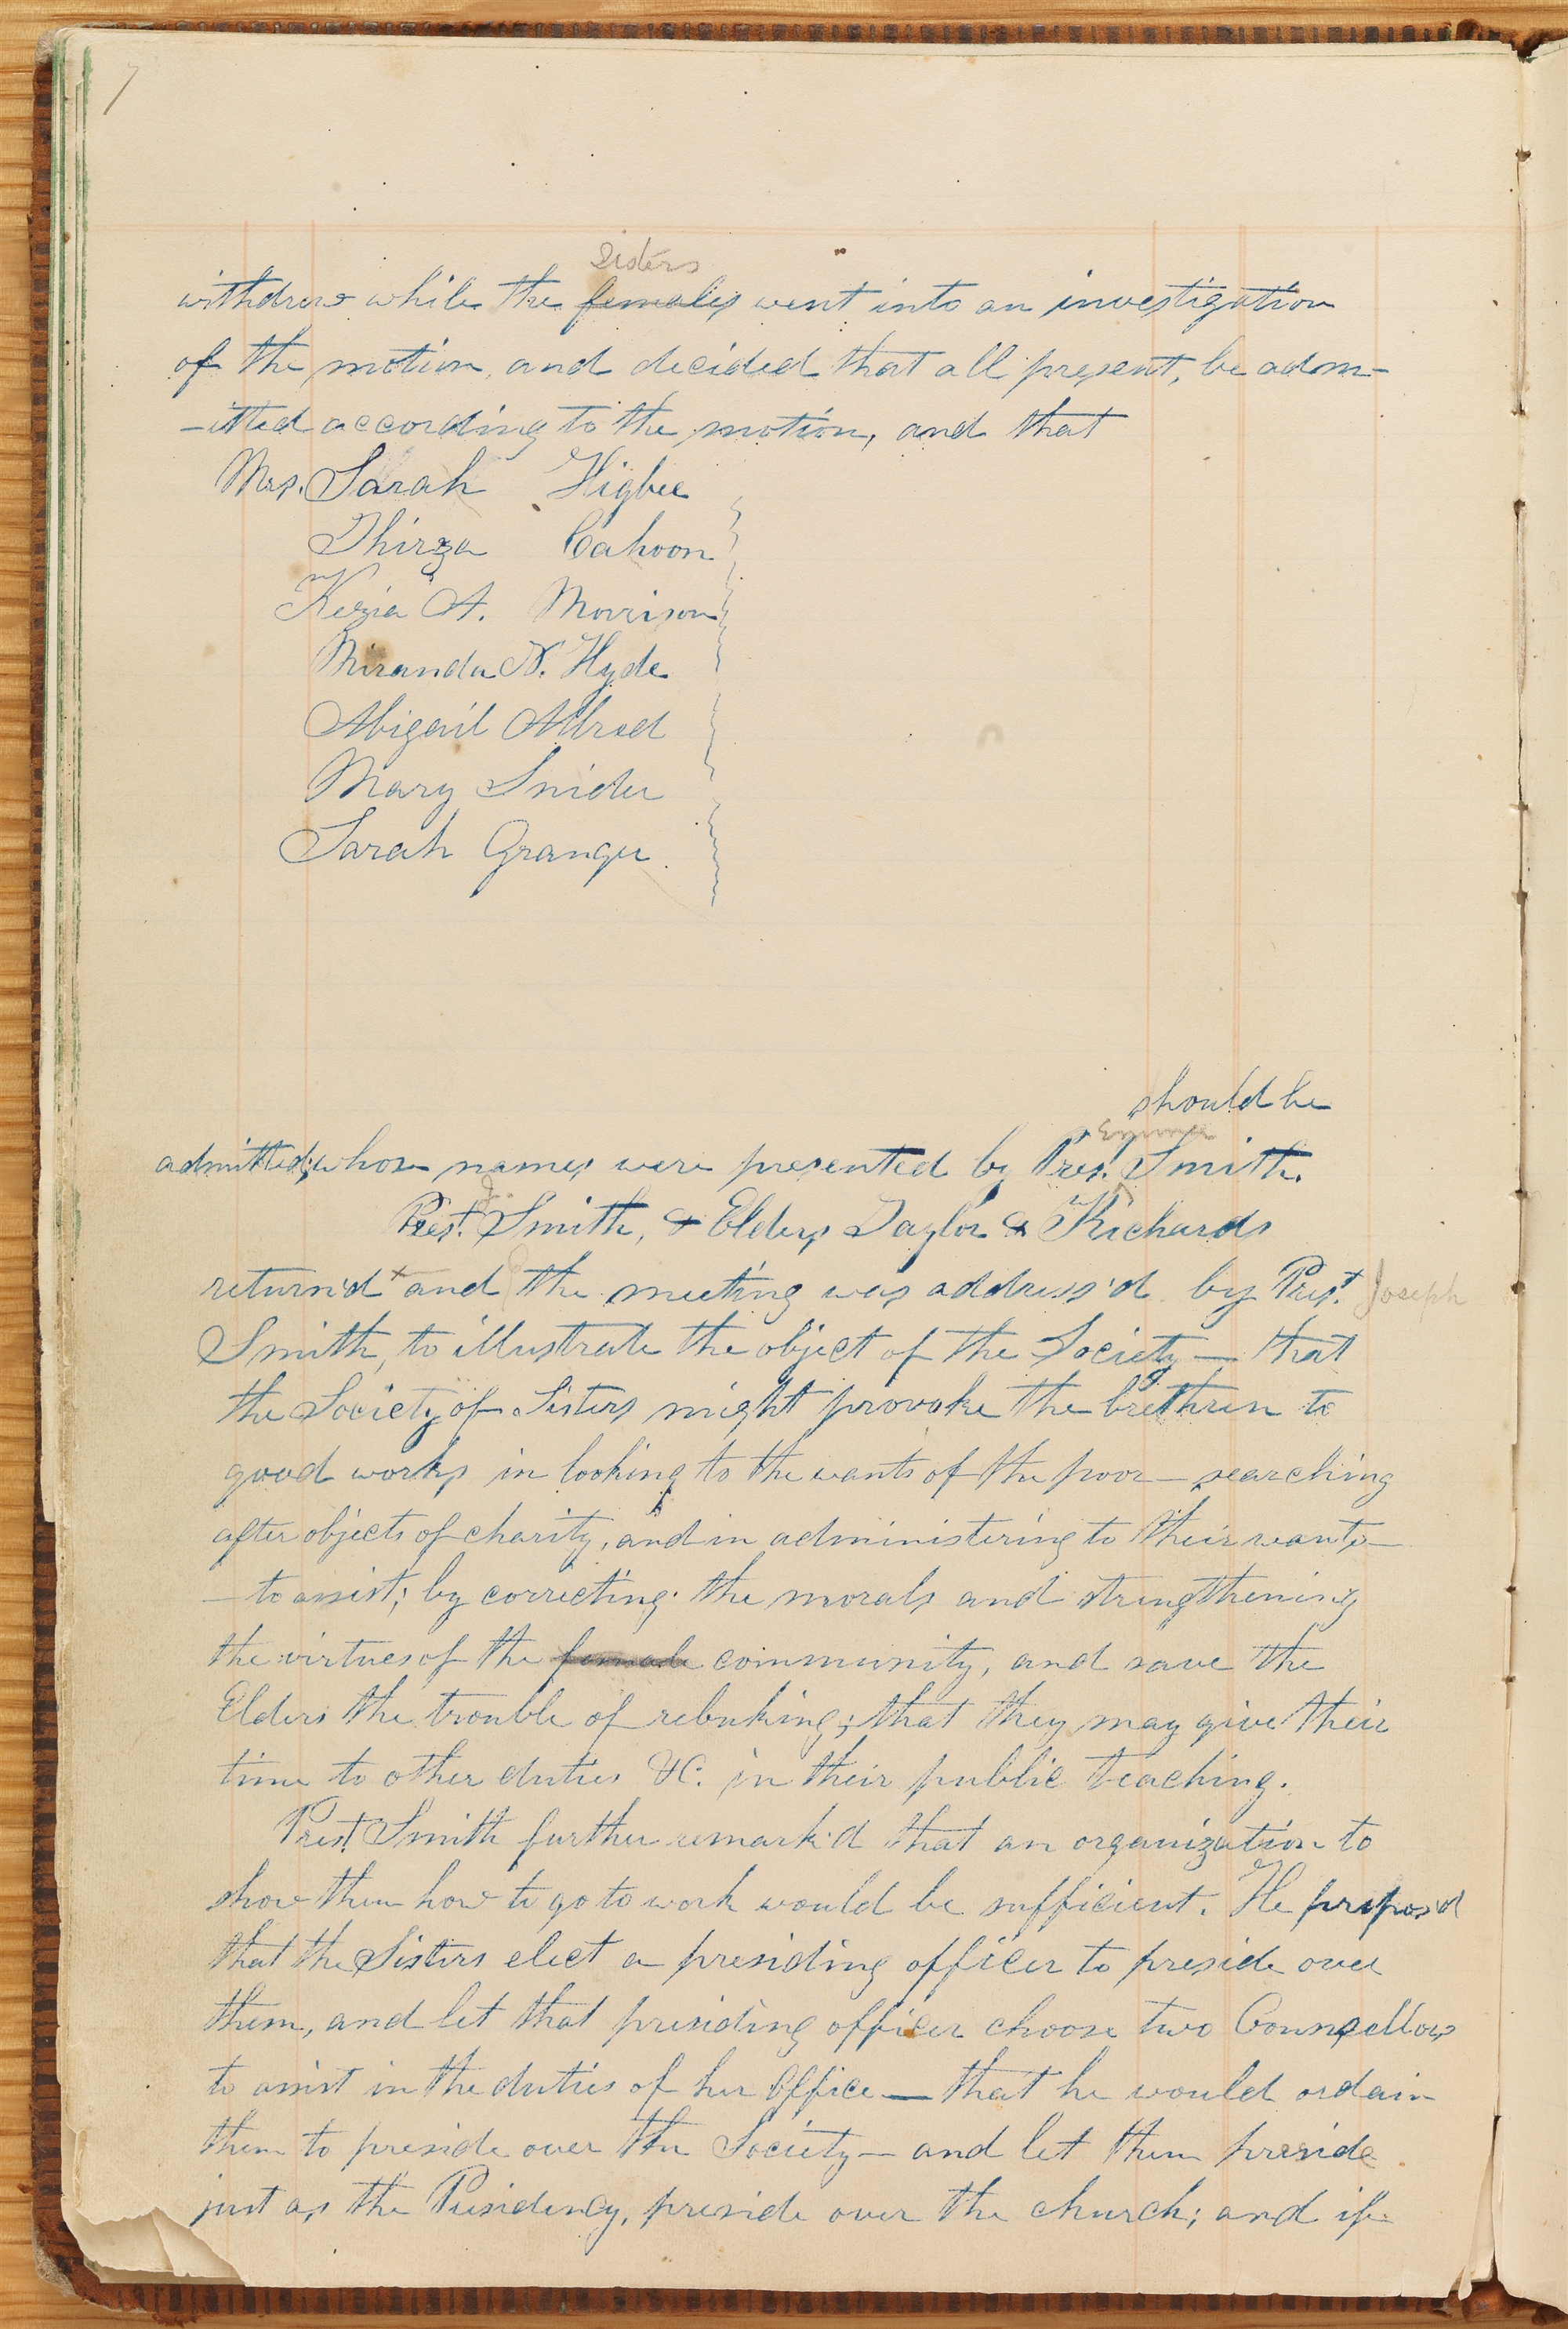 7
Sisters
withdrew while the females went into an investigation
of the motion, and decided that all present, be adm-
-itted according to the motion, and that
Mrs. Sarah Higbee
Thirza Cahoon
Kezia A. Morrison
Miranda N. Hyde
Abigail Allred
Mary Snider
Sarah Granger.
should be
admitted; whose names were presented by Pres.t Smith.
Prest. J. Smith, & Elders Taylor & Richards
return'd x and the meeting was address'd by Pres.t Joseph
Smith, to illustrate the object of the Society — that
the Society of Sisters might provoke the brethren to
good works in looking to the wants of the poor — searching
after objects of charity, and in administering to their wants —
— to assist; by correcting the morals and strengthening
the virtues of the female community, and save the
Elders the trouble of rebuking; that they may give their
time to other duties &C. in their public teaching.
Prest. Smith further remark'd that an organization to
show them how to go to work would be sufficient. He propos'd
that the Sisters elect a presiding officer to preside over
them, and let that presiding officer choose two Counsellors
to assist in the duties of her Office — that he would ordain
them to preside over the Society — and let them preside
just as the Presidency, preside over the church; and if